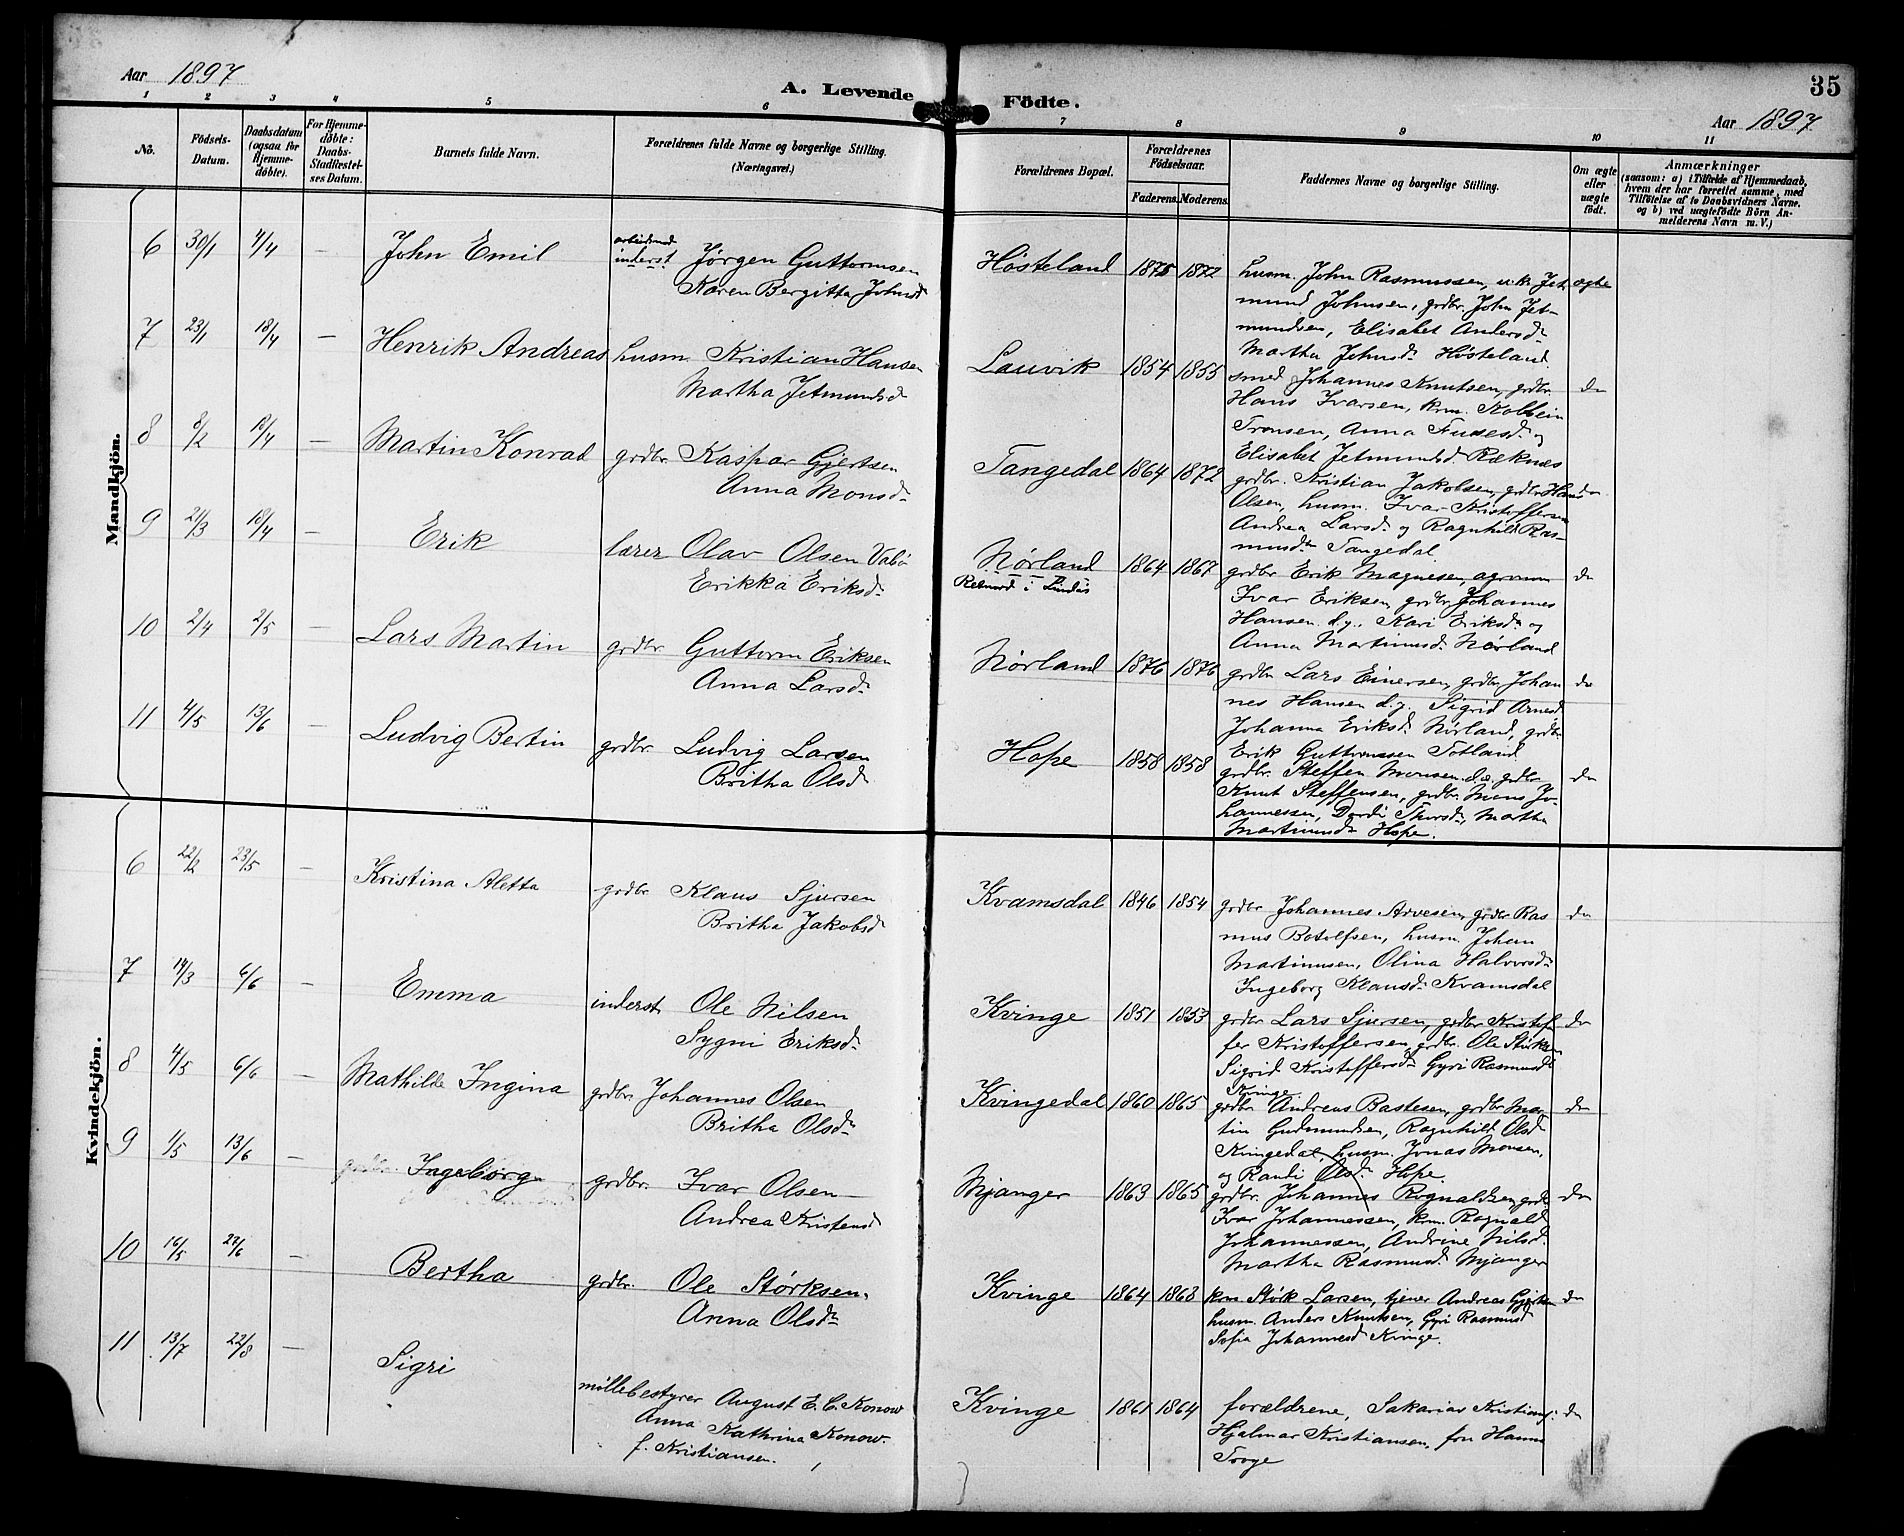 Aar 1897
A. Levende Födte.
35
Aar 1897
1 2 3 4 5 6 7 8 9 10 11
No.
Födsels-
Datum.
Daabsdatum
(ogsaa for
Hjemme-
döbte).
For Hjemme-
döbte:
Daabs-
Stadfæstel-
ses Datum.
Barnets fulde Navn.
Forældrenes fulde Navne og borgerlige Stilling.
(Næringsvei.)
Forældrenes Bopæl.
Forældrenes
Födselsaar.
Faderens. Moderens.
Faddernes Navne og borgerlige Stilling.
Om ægte
eller
uægte
födt.
Anmærkninger
(saasom: a) i Tilfælde af Hjemmedaab,
hvem der har forrettet samme, med
Tilföielse af to Daabsvidners Navne.
og b) ved uægtefödte Börn An-
melderens Navn m. V.)
Mandkjön.
6 30/1 4/4 — John Emil
arbeidsmd
inderst Jørgen Guttormsen
Karen Bergitta Johnsd
Høsteland 1875 1872
husm. John Rasmussen, u.k. Jet- ægte
mund Johnsen, grdbr. John Jet-
mundsen, Elisabet Andersd.
Martha Johnsd. Høsteland.
7 23/1 18/4 — Henrik Andreas husm. Kristian Hansen
Martha Jetmundsd
Lauvik 1854 1855
smed Johannes Knutsen, grdbr. do
Hans Ivarsen, krm. Kolbein
Tronsen, Anna Fusesd. og
Elisabet Jetmundsd. Røknes
8 8/2 18/4 — Martin Konrad grdbr. Kaspar Gjertsen
Anna Monsd.
Tangedal 1864 1872
grdbr. Kristian Jakobsen, grdbr Hans do
Olsen, husm. Ivar Kristoffersen
Andrea Larsd. og Ragnhild Ras-
musd. Tangedal
9 21/3 18/4 — Erik
lærer Olav Olsen Vabö
Erikka Eriksd.
Nørland 1864 1867
i Lindås
grdbr Erik Magnesen, agronom do
Ivar Eriksen, grdbr. Johannes
Hansen d.y., Kari Eriksd. og
Anna Martinusd. Nørland
10 2/4 2/5 — Lars Martin grdbr Guttorm Eriksen
Anna Larsd.
Nørland 1876 1876
grdbr Lars Einersen, grdbr Johan do
nes Hansen d.y. Sigrid Arnesd.
Johanna Eriksd. Nørland, grdbr.
Erik Guttormssen Totland
11 4/5 13/6 — Ludvig Bertin grdbr. Ludvig Larsen
Britha Olsd
Hope 1858 1858
grdbr. Steffen Monsen d.e. grdbr. do
Knut Steffensen, grdbr. Mons Jo-
hannessen, Dordi Thorsd., Martha
Martinusd. Hope.
Kvindekjön.
6 22/2 23/5 — Kristina Aletta grdbr Klaus Sjursen
Britha Jakobsd
Kvamsdal 1846 1854
grdbr Johannes Arvesen, grdbr Ras do
mus Botolfsen, husm. Johan
Martinusen, Olina Halvorsd.
Ingeborg Klausd. Kvamsdal
7 14/3 6/6 — Emma
inderst Ole Nilsen
Sygni Eriksd.
Kvinge 1851 1853
grdbr Lars Sjursen, grdbr Kristof do
fer Kristoffersen, grdbr. Ole Størksen
Sigrid Kristoffersd. Gyri Rasmusd
Kvinge
8 4/5 6/6 — Mathilde Ingina grdbr Johannes Olsen
Britha Olsd.
Kvingedal 1860 1865
grdbr Andreas Bastesen, grdbr Mar do
tin Gudmundsen, Ragnhild Olsd
Kvingedal, husm. Jonas Monsen,
og Randi Olsd. Hope.
9 1/5 13/6 — Ingeborg
grdbr. Ivar Olsen
Andrea Kristensd
Mjanger 1863 1865
grdbr. Johannes Rognaldsen, grdbr do
Ivar Johannessen, krm. Rognald
Johannessen, Andrine Nilsd.
Martha Rasmusd. Mjanger
10 16/5 27/6 — Bertha
grdbr. Ole Størksen.
Anna Olsd.
Kvinge 1864 1868
krm Størk Larsen, tjener Andreas Gjertsen do
husm. Anders Knutsen, Gyri Rasmusd
Sofia Johannesd Kvinge.
11 13/7 22/8 — Sigri
möllebestyrer August E. C. Konow
Anna Kathrina Konow.
f. Kristiansen.
Kvinge 1861 1864
forældrene, Sakarias Kristians. do
Hjalmar Kristiansen, fru Hanna
Troye